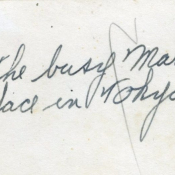 The busy Mar
lace in Tokyo